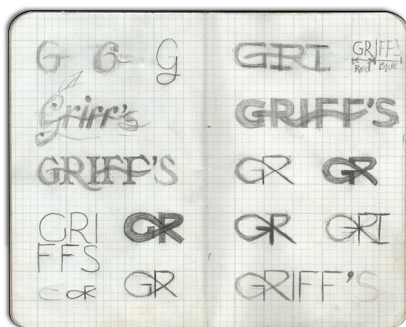 G G G
Griff's
GRIFF'S
GRI GR
FFS
GR GR
GRI GRIFF'S
Red Blue
GRIFF'S
GR GR
GR GRI
GRIFF'S